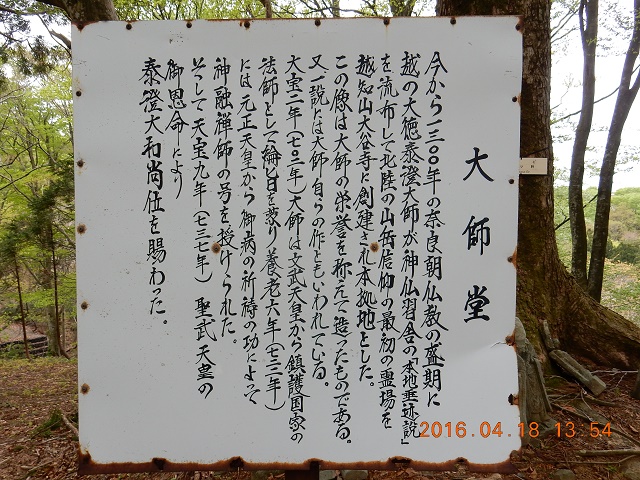 大師堂
今から一三〇〇年の奈良朝仏教の盛期に
越の大徳泰澄大師が神仏習合の「本地垂迹説」
を流布して北陸の山岳信仰の最初の霊場を
越知山大谷寺に創建され本拠地とした。
この像は大師の栄誉を称えて造ったものである。
又一説には大師自らの作ともいわれている。
大宝二年(七〇二年)大師は文武天皇から鎮護国家の
法師として綸旨を蒙り養老六年(七二二年)
には元正天皇から御病の祈祷の功によって
神融禅師の号を授けられた。
そして天宝九年(七三七年)聖武天皇の
御恩命により
泰澄大和尚位を賜わった。
2016.04.18 13:54